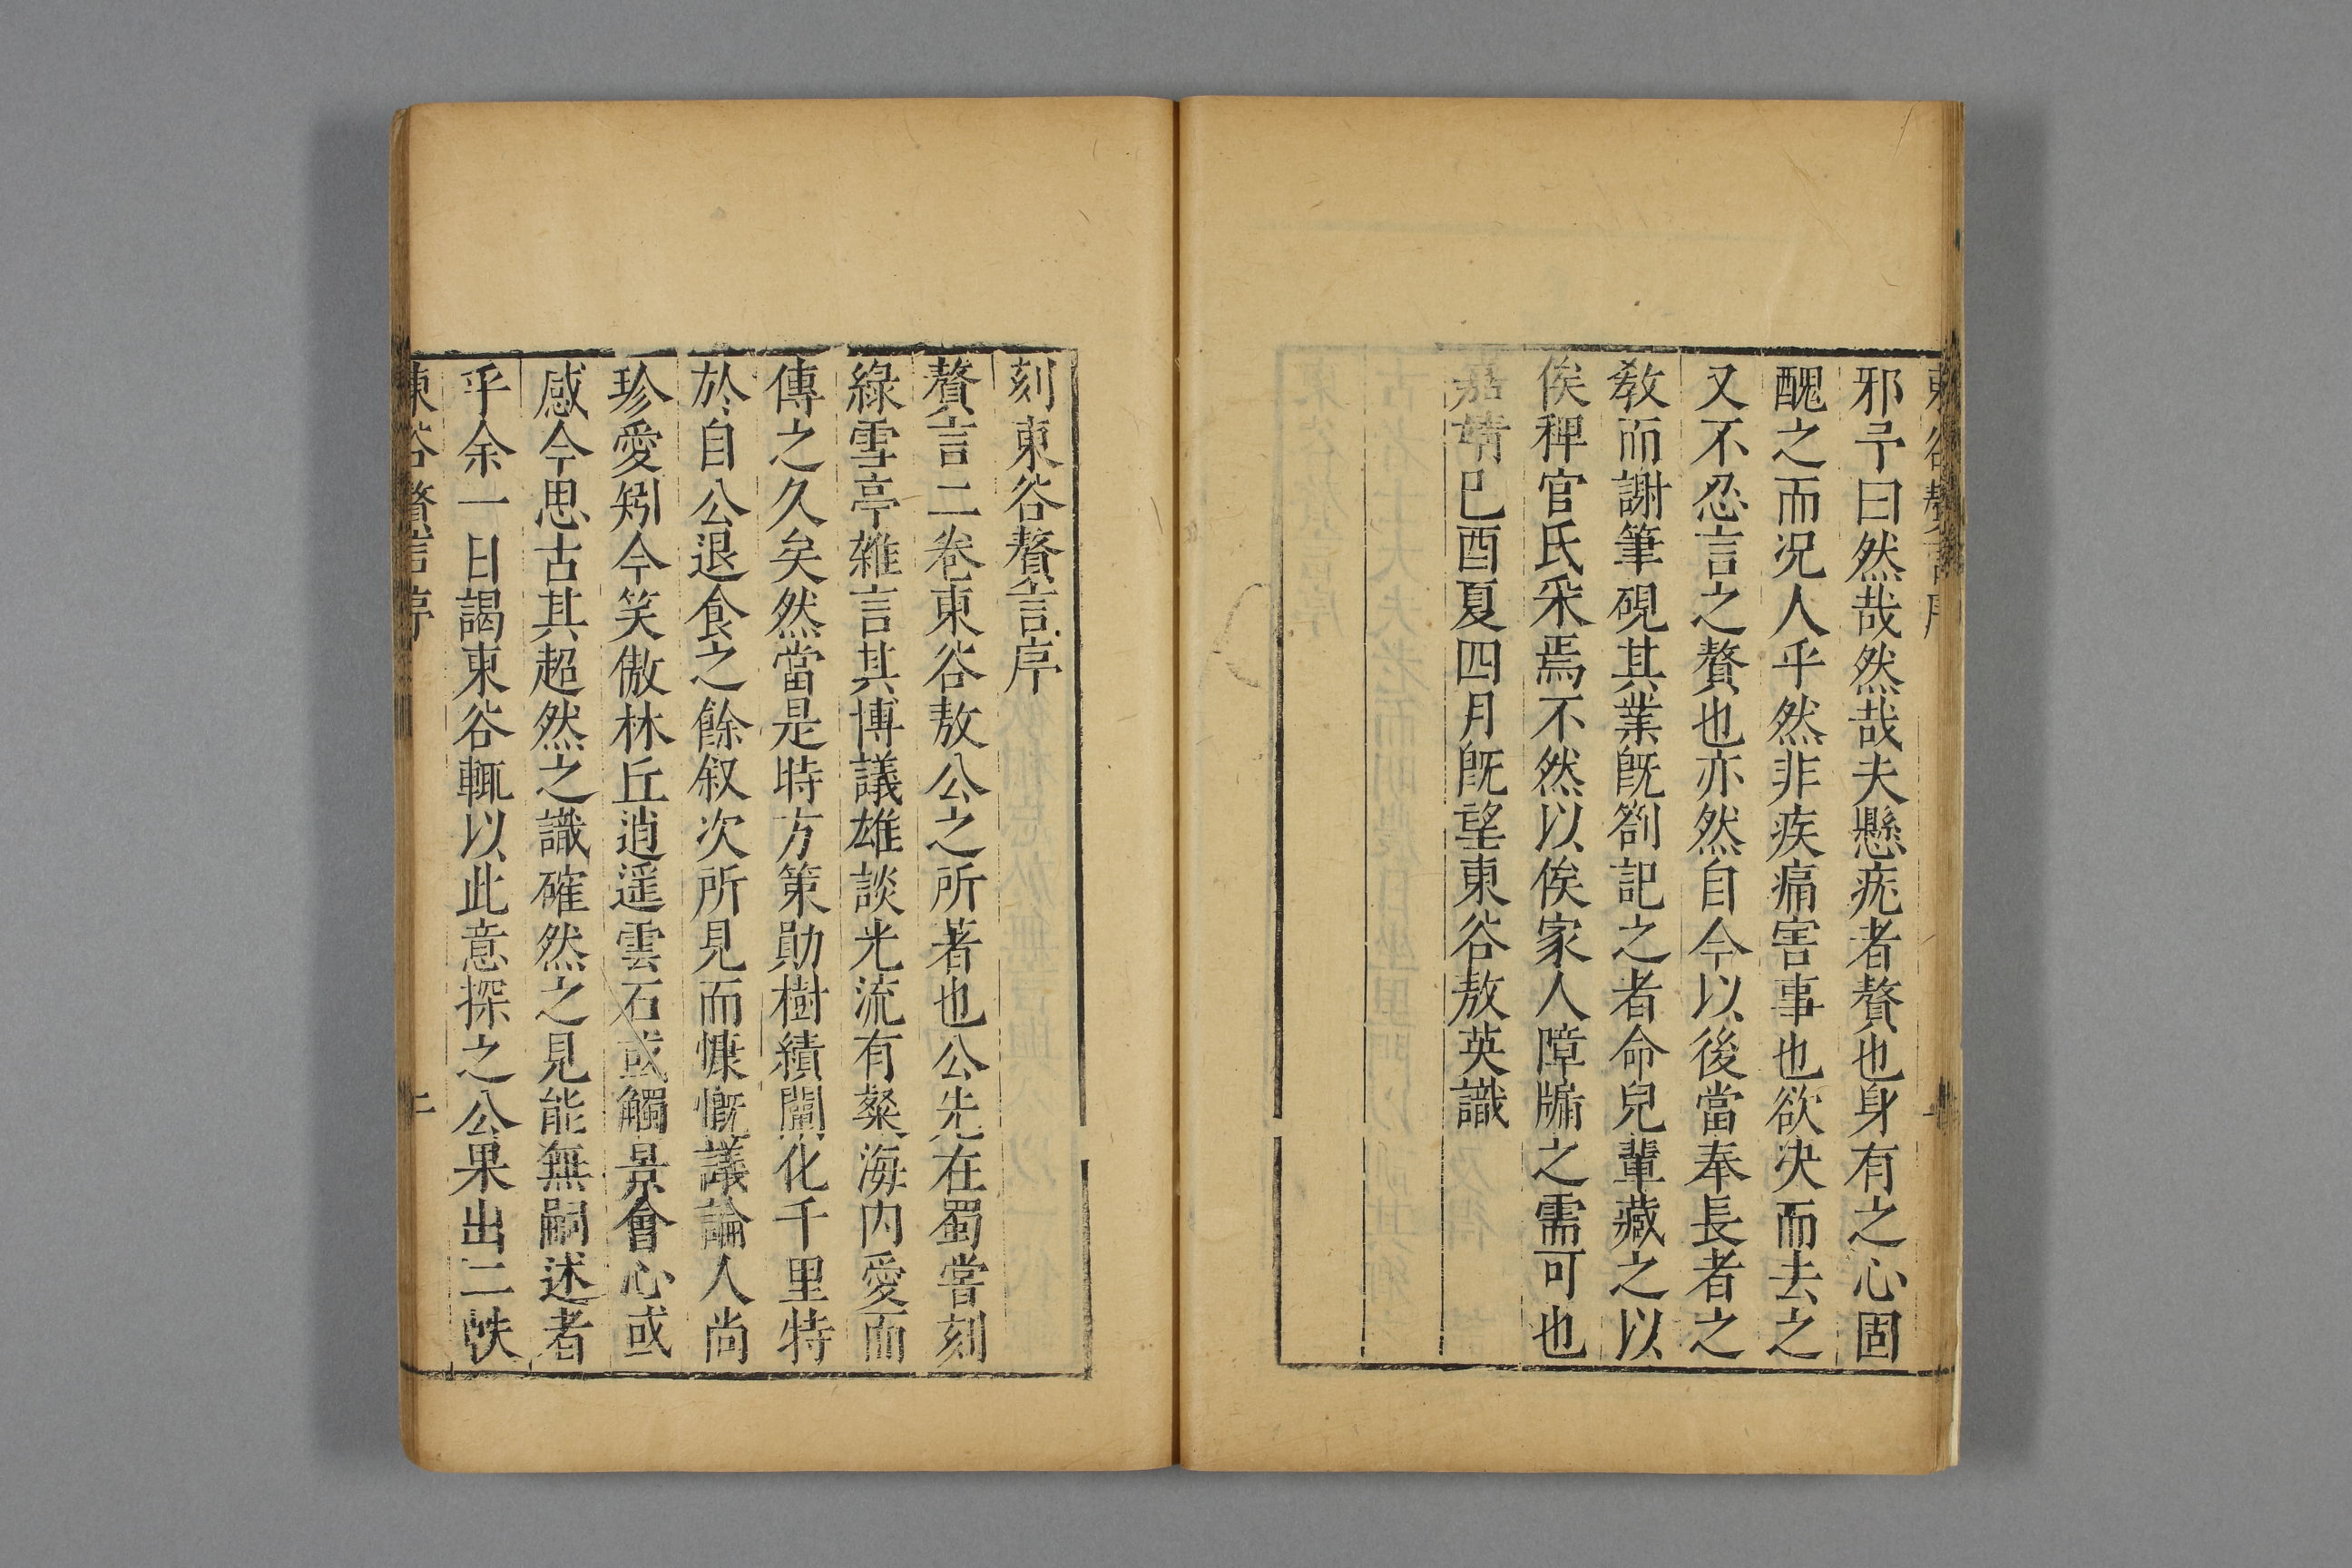 東谷贅言序
邪予曰然哉然哉夫懸疣者贅也身有之心固
醜之而况人乎然非疾痛害事也欲决而去之
又不忍言之贅也亦然自今以後當奉長者之
教而謝筆硯其業既劄記之者命兒輩藏之以
俟稗官氏采焉不然以俟家人障牖之需可也
嘉靖已酉夏四月既望東谷敖英識
刻東谷贅言序
贅言二卷東谷敖公之所著也公先在蜀嘗刻
綠雪亭雜言其博議雄談光流有粲海内愛而
傳之久矣然當是時方策勛樹績闡化千里特
於自公退食之餘叙次所見而慷慨議論人尚
珍愛矧今笑傲林丘逍遥雲石或觸景會心或
感今思古其超然之識確然之見能無嗣述者
乎余一日謁東谷輒以此意探之公果出二帙
東谷贅言序